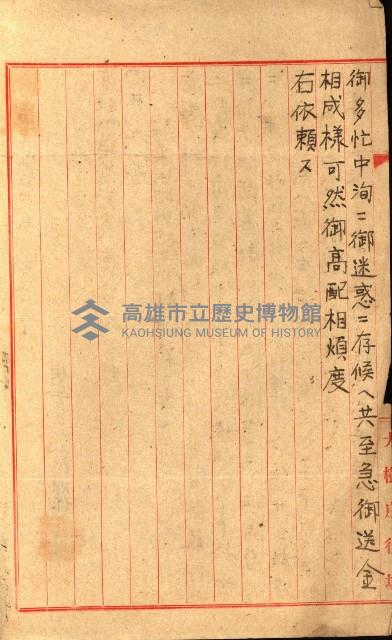 御多忙中洵ニ御迷惑ニ存候ヘ共至急御送金
相成様可然御高配相煩度
右依頼ス
高雄市立歷史博物館
KAOHSIUNG MUSEUM OF HISTORY